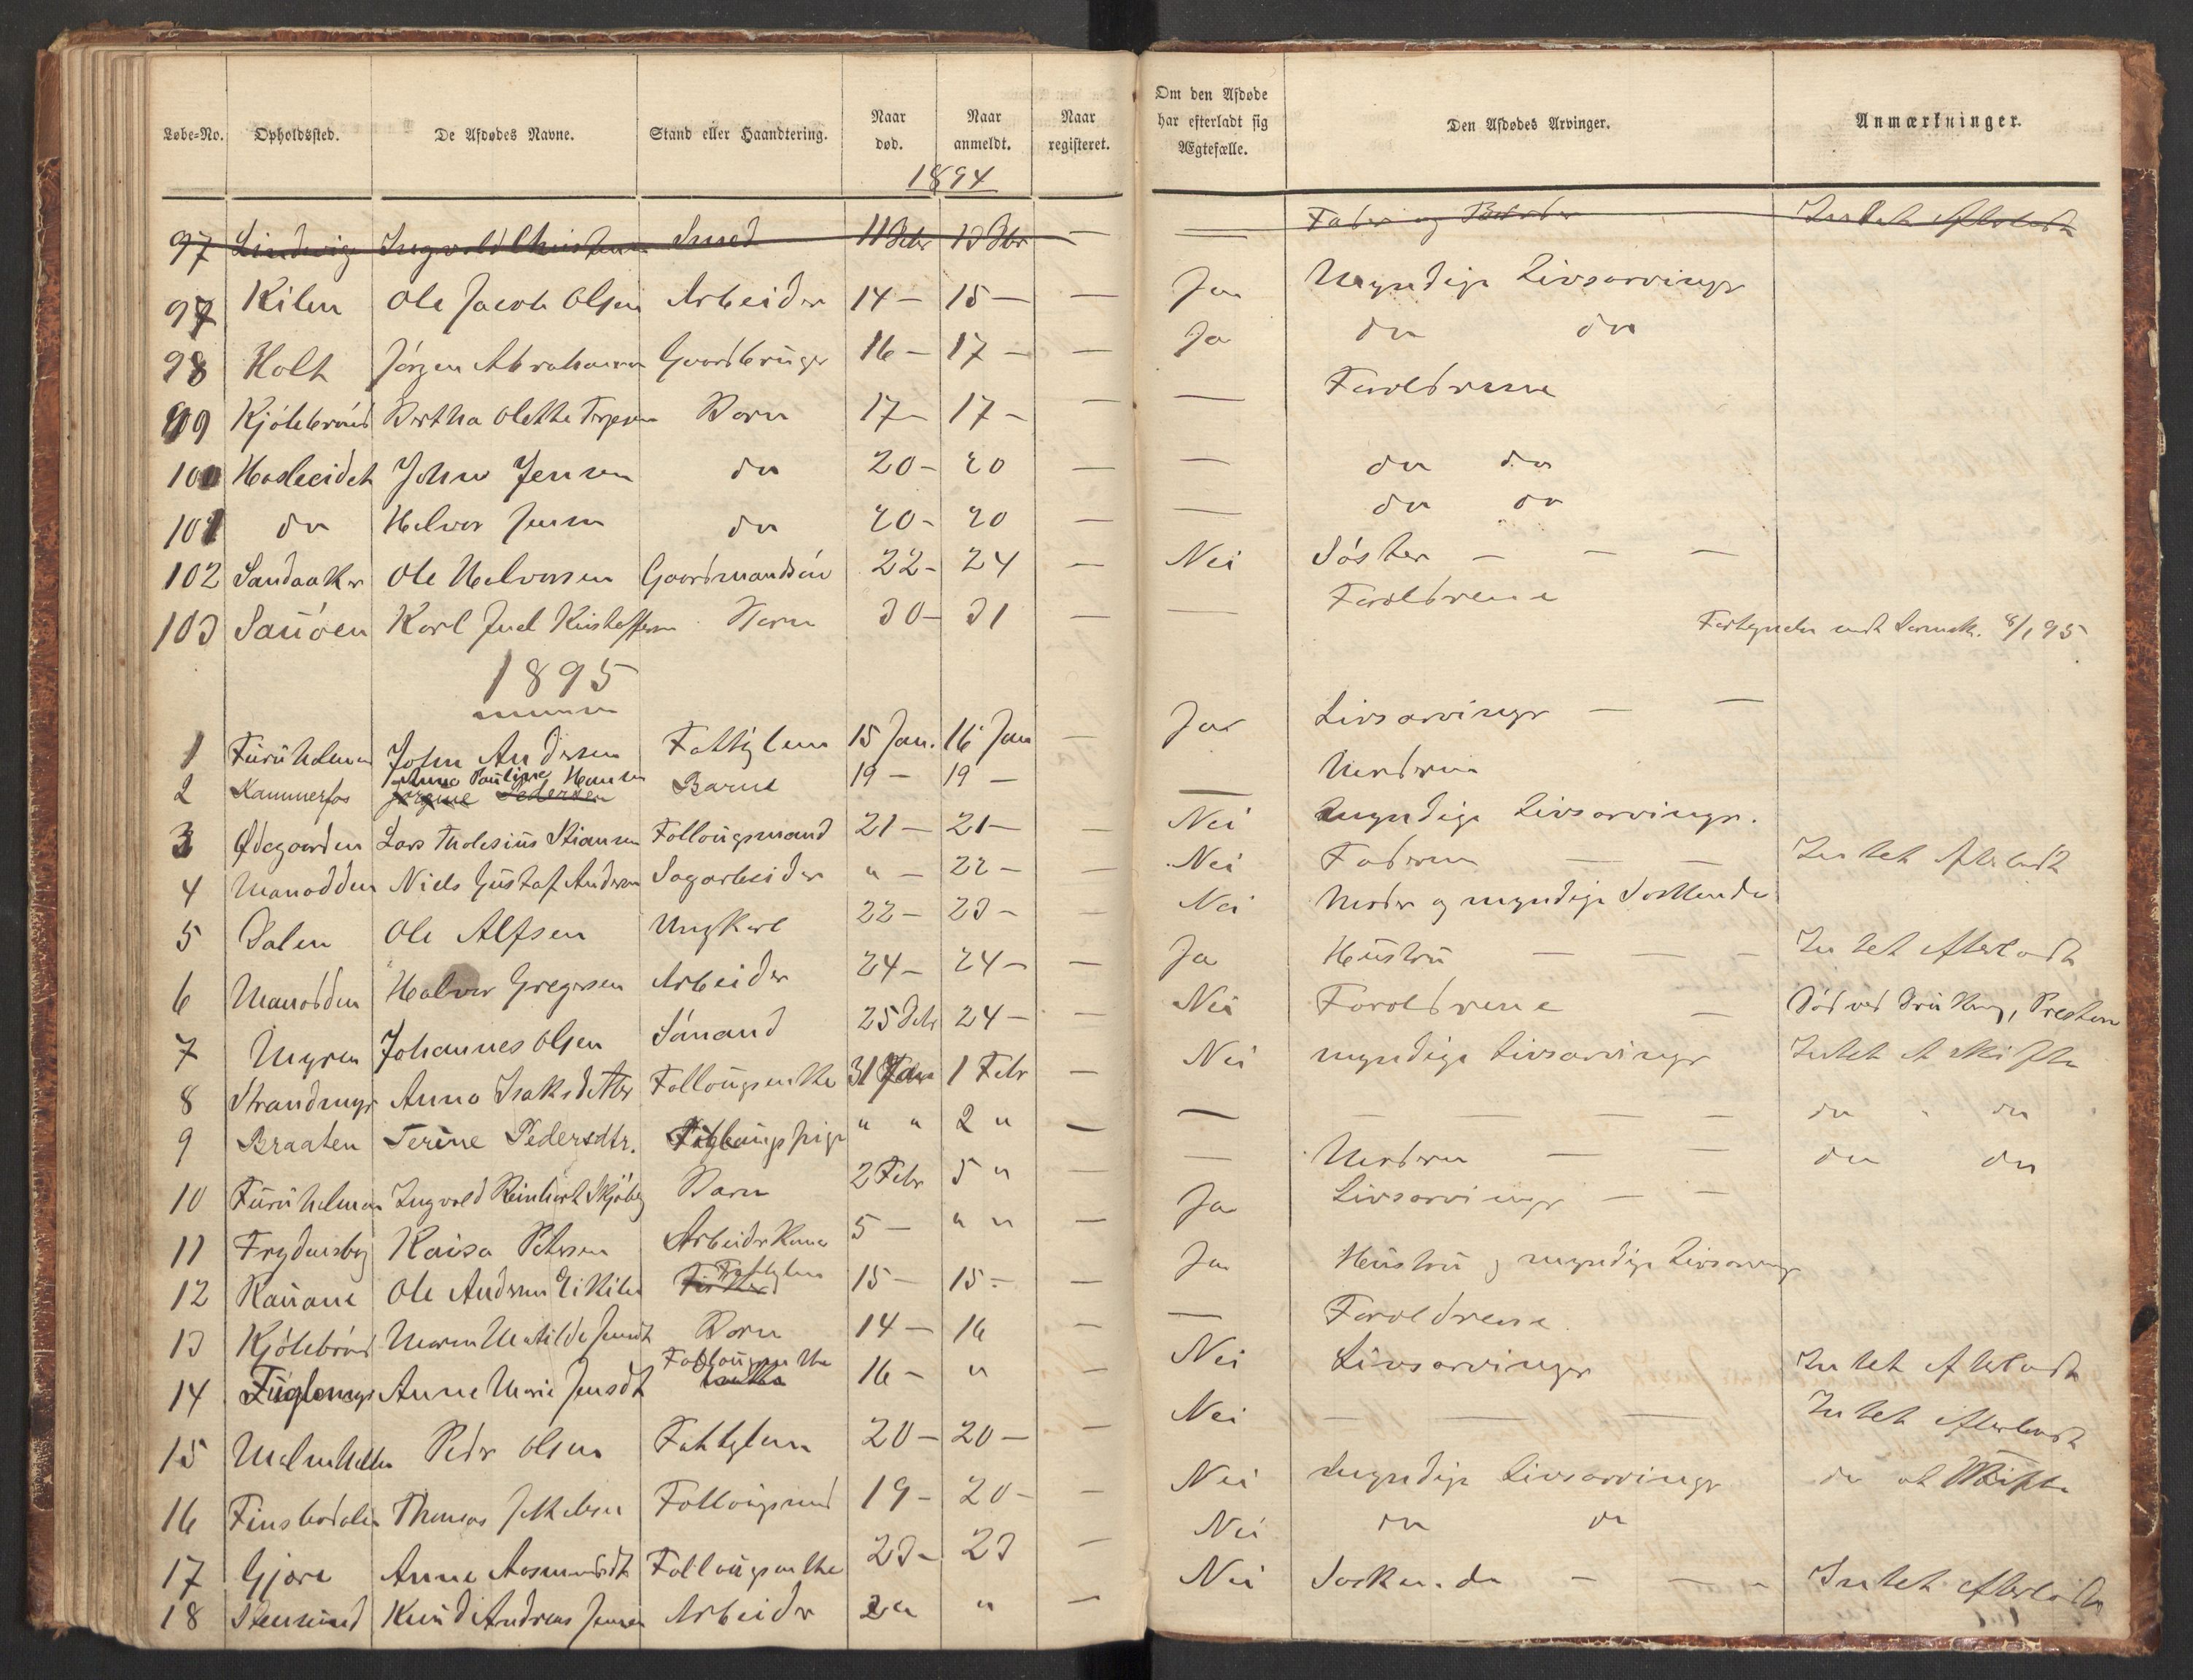 Løbe-No. Opholdssted. De Afdødes Navne. Stand eller Haandtering. Naar død. Naar anmeldt. Naar registeret. Om den Afdøde har efterladt sig Ægtefælle. Den Afdødes Arvinger. Anmærkninger.
1894
97 Lindvig Ingvald Christensen Smed 11 Dbr 13 Dbr — — Fader og Intet efterladt
97 Kilen Ole Jacob Olsen Arbeider 14 — 15 — — Ja Myndige Livsarvinger
98 Holt Jörgen Abrahamsen Gaardbruger 16 — 17 — — Ja do do
99 Kjölebrönd Bertha Olette Terjesen Barn 17 — 17 — — — Forældrene
100 Hasleeidet John Jensen do 20 — 20 — — do do
101 do Halvor Jensen do 20 — 20 — — do do
102 Sandaaker Ole Halvorsen Gaardmandsön 22 — 24 — Nei Söster — — —
103 Sauöen Karl Juel Kristoffersen Barn 30 — 31 — — Forældrene
8/1 95
1895
1 Furuholmen John Andersen Fattiglem 15 Jan. 16 Jan — Ja Livsarvinger — —
2 Kammerfos Jörgine Pedersen Anna Pauline Hansen Barne 19 — 19 — — Moderen
3 Ödegaarden Lars Tholesius Stiansen Follougsmand 21 — 21 — — Nei Myndige Livsarvinger.
4 Manodden Niels Gustaf Andersen Sagarbeider " — 22 — — Nei Faderen — — Intet efterladt
5 Dalen Ole Alfsen Ungkarl 22 — 23 — — Nei Moder og myndige Söskende
6 Manodden Halvor Gregersen Arbeider 24 — 24 — — Ja Hustru — — — Intet efterladt
7 Myren Johannes Olsen Sömand 25 Dbr 24 — — Nei Forældrene — Död ved Drukning, Preston
8 Strandmyr Anna Isaksdatter Follougsenke 31 Jan 1 Febr — Nei myndige Livsarvinger Intet at skifte
9 Braaten Terine Pedersdtr. pige " " 2 " — — — — — — do " do
10 Furuholmen Ingvald Reinhart Skjöberg Barn 2 Febr 5 " — — Moderen — — do do
11 Frydensborg Kaisa Petersen Arbeiderkone 5 — " " — Ja Livsarvinger — —
12 Kauane Ole Andersen Eikilen Fattiglem 15 — 15 — — Ja Hustru og myndige Livsarvinger
13 Kjölebrönd Maren Matilde Jensdt Barn 14 — 16 — — Forældrene
14 Fuglemyr Anne Marie Jensdt Follougsenke 16 — " — Nei Livsarvinger Intet efterladt
15 Peder Olsen Fattiglem 20 — 20 — — Nei — — — Intet efterladt
16 Finsbodalen Thomas Jakobsen Follougsmd 19 — 20 — — Nei Myndige Livsarvinger do at skifte
17 Gjære Anne Aasmundsdt Follougsenke 23 — 23 — Nei do do
18 Stensund Knud Andreas Jensen Arbeider 2 " " — Nei Söskende — — — Intet efterladt